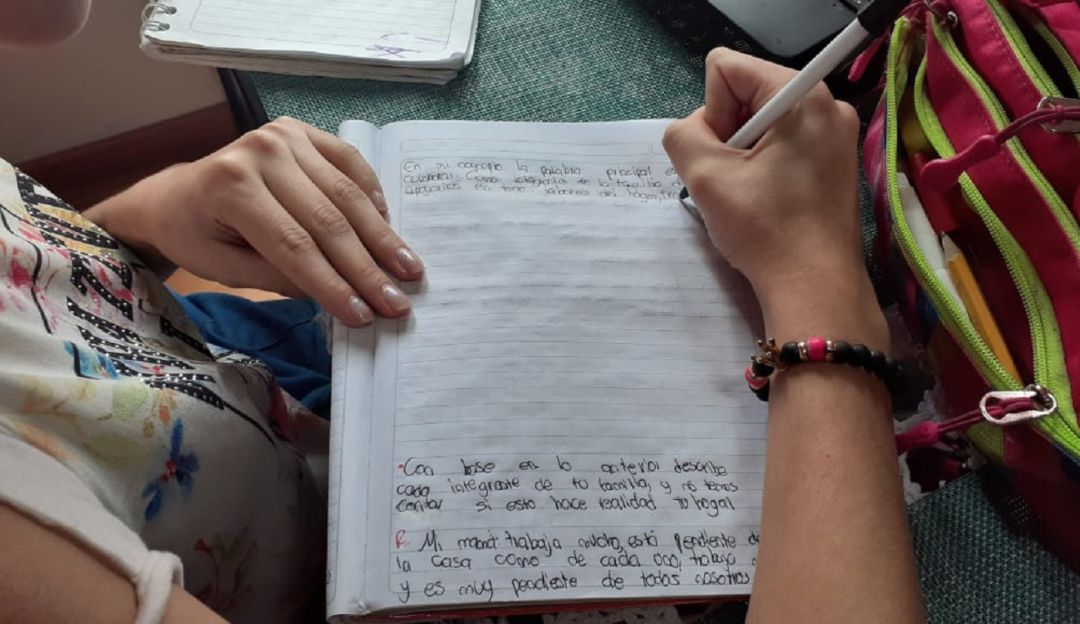 En mi concepto la palabra principal es
colaborar. Como integrante de la familia
apoyarnos en todo labores del hogar
•Con base en lo anterior describe
cada integrante de tu familia y
contar si esto hace realidad tu hogar
R Mi mamá: trabaja mucho, está pendiente de
la casa como de cada uno, trabaja
y es muy pendiente de todos nosotros